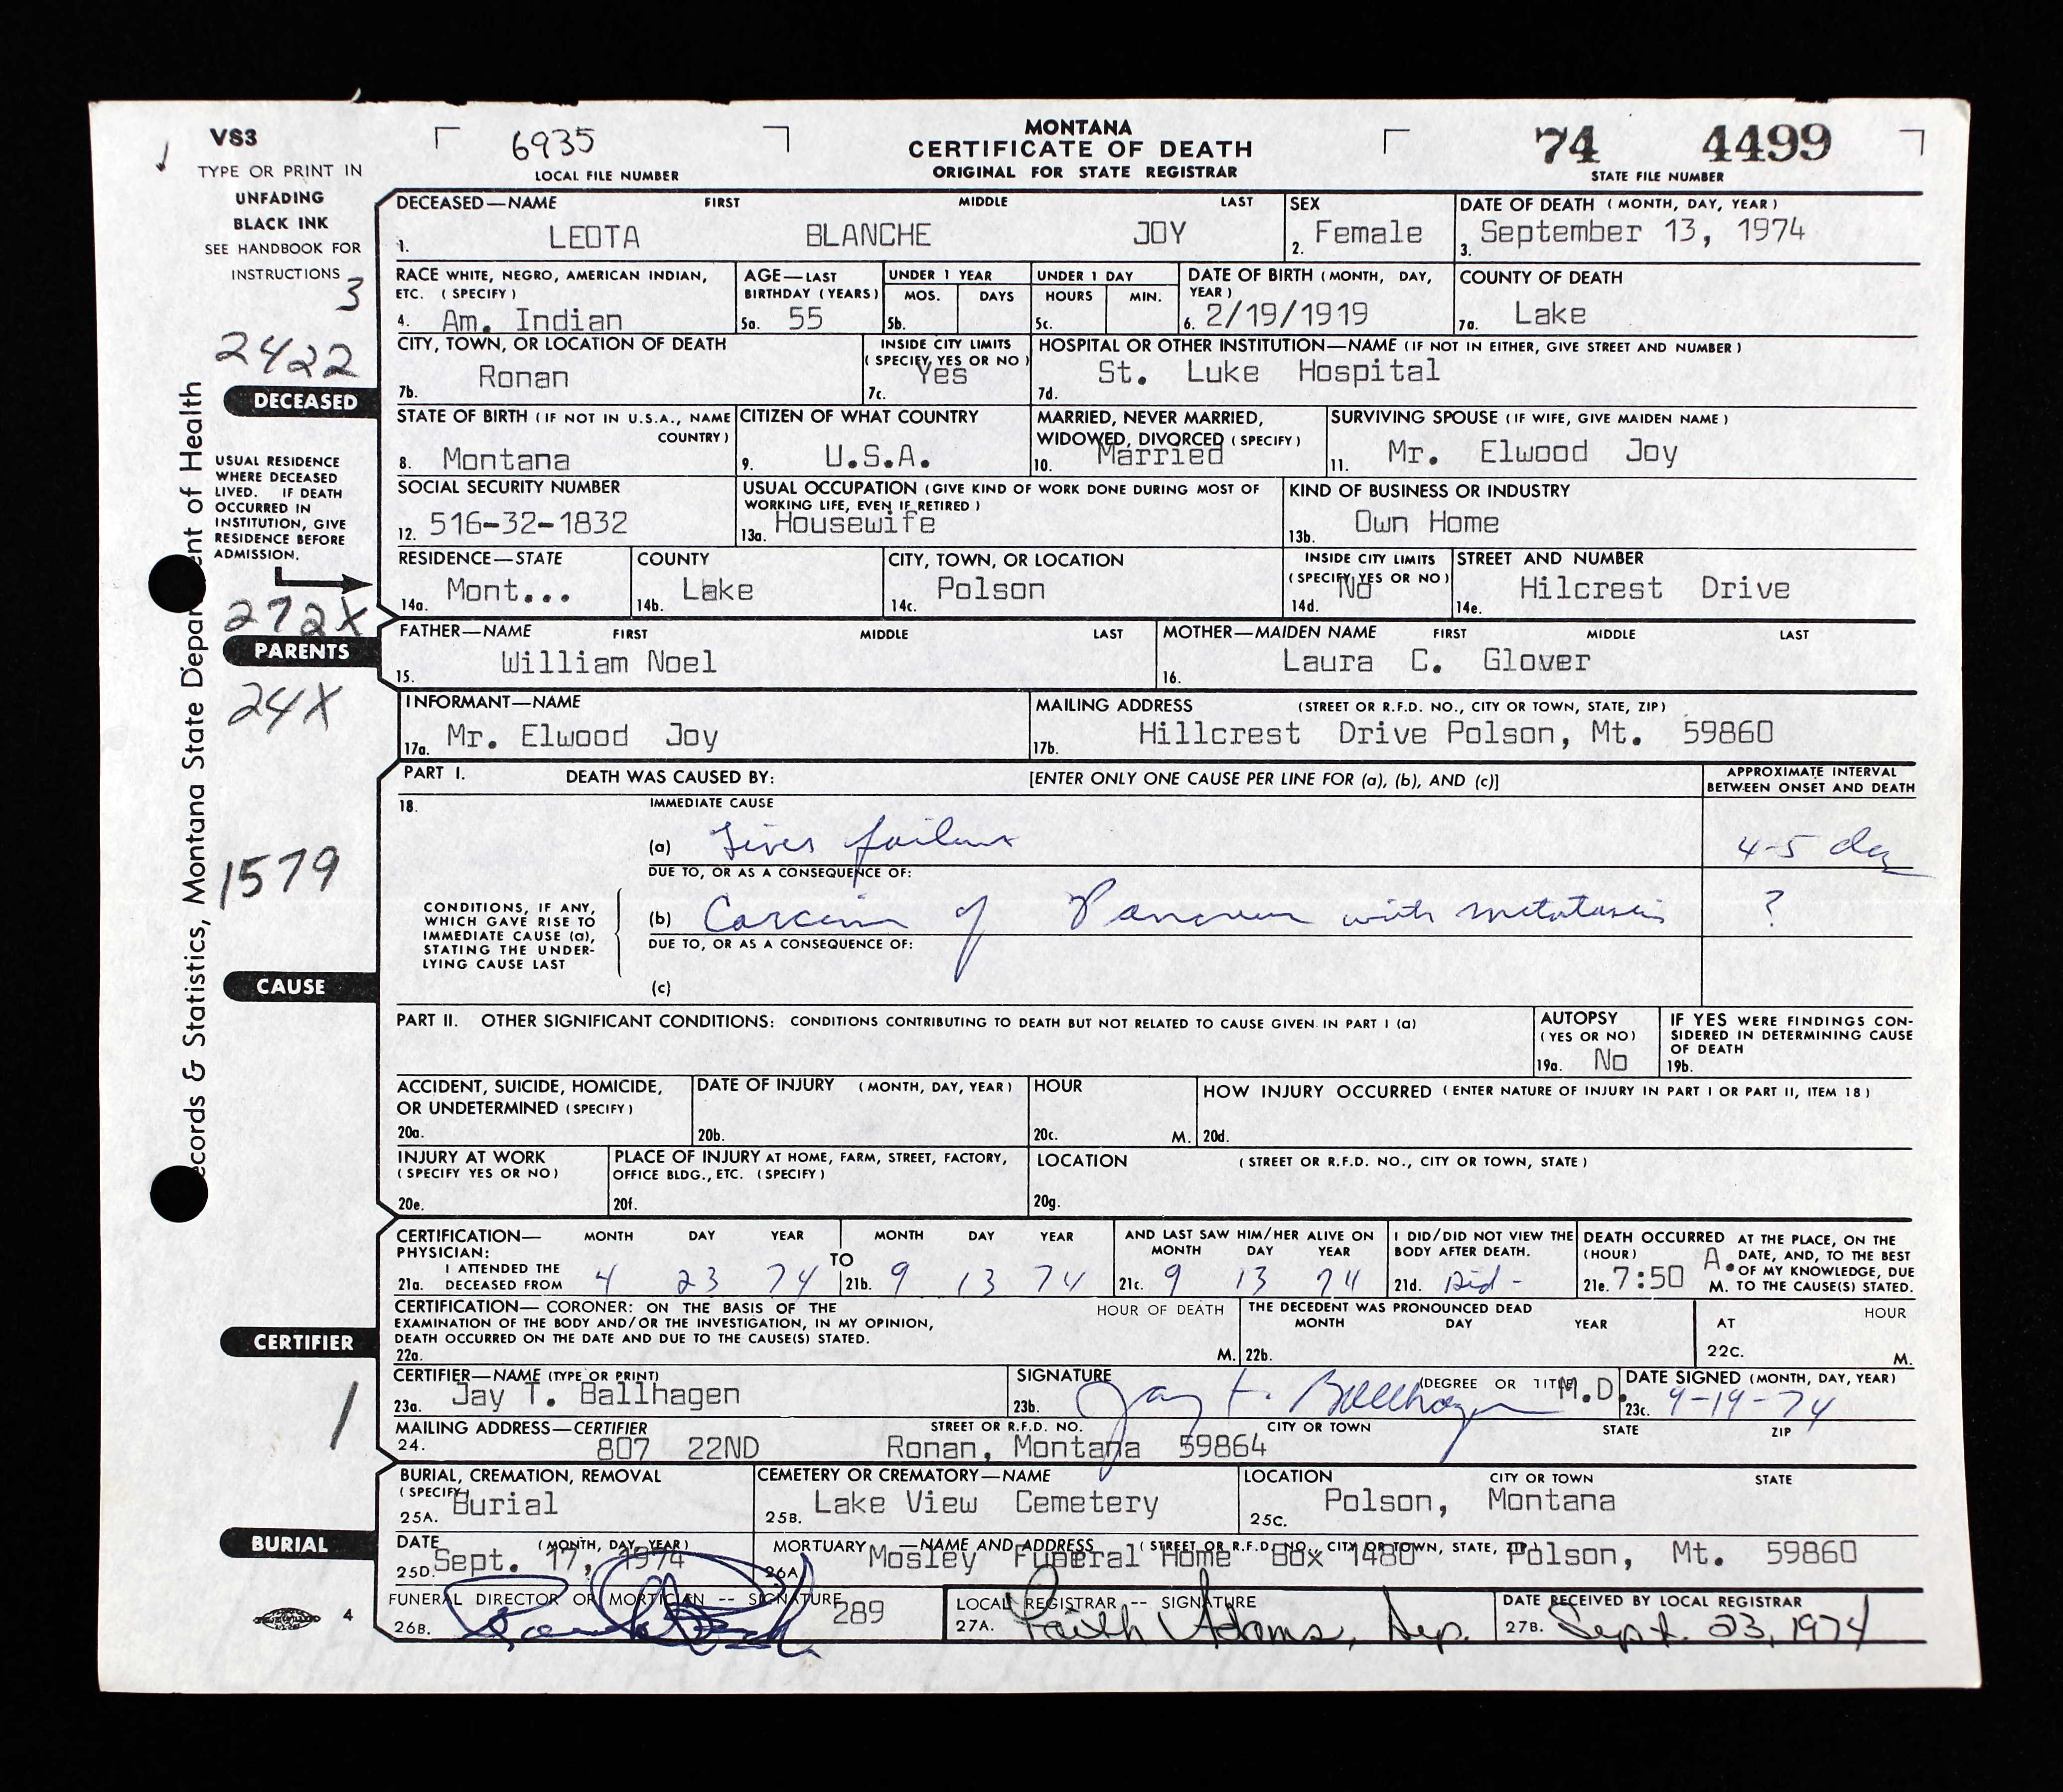 VS3
6935
LOCAL FILE NUMBER
MONTANA
CERTIFICATE OF DEATH
ORIGINAL FOR STATE REGISTRAR
74 4499
STATE FILE NUMBER
TYPE OR PRINT IN
UNFADING
BLACK INK
SEE HANDBOOK FOR
INSTRUCTIONS
3
2422
DECEASED
USUAL RESIDENCE
WHERE DECEASED
LIVED. IF DEATH
OCCURRED IN
INSTITUTION, GIVE
RESIDENCE BEFORE
ADMISSION.
272X
PARENTS
24X
1579
CAUSE
CERTIFIER
1
BURIAL
4
ecords & Statistics, Montana State Depar ent of Health
DECEASED—NAME FIRST MIDDLE LAST
1. LEOTA BLANCHE JOY
SEX
2. Female
DATE OF DEATH (MONTH, DAY, YEAR)
3. September 13, 1974
RACE WHITE, NEGRO, AMERICAN INDIAN,
ETC. (SPECIFY)
4. Am. Indian
AGE—LAST
BIRTHDAY (YEARS)
5a. 55
UNDER 1 YEAR
MOS. DAYS
5b.
UNDER 1 DAY
HOURS MIN.
5c.
DATE OF BIRTH (MONTH, DAY,
YEAR)
6. 2/19/1919
COUNTY OF DEATH
7a. Lake
CITY, TOWN, OR LOCATION OF DEATH
7b. Ronan
INSIDE CITY LIMITS
(SPECIFY YES OR NO)
7c. Yes
HOSPITAL OR OTHER INSTITUTION—NAME (IF NOT IN EITHER, GIVE STREET AND NUMBER)
7d. St. Luke Hospital
STATE OF BIRTH (IF NOT IN U.S.A., NAME
COUNTRY)
8. Montana
CITIZEN OF WHAT COUNTRY
9. U.S.A.
MARRIED, NEVER MARRIED,
WIDOWED, DIVORCED (SPECIFY)
10. Married
SURVIVING SPOUSE (IF WIFE, GIVE MAIDEN NAME)
11. Mr. Elwood Joy
SOCIAL SECURITY NUMBER
12. 516-32-1832
USUAL OCCUPATION (GIVE KIND OF WORK DONE DURING MOST OF
WORKING LIFE, EVEN IF RETIRED)
13a. Housewife
KIND OF BUSINESS OR INDUSTRY
13b. Own Home
RESIDENCE—STATE
14a. Mont...
COUNTY
14b. Lake
CITY, TOWN, OR LOCATION
14c. Polson
INSIDE CITY LIMITS
(SPECIFY YES OR NO)
14d. No
STREET AND NUMBER
14e. Hilcrest Drive
FATHER—NAME FIRST MIDDLE LAST
15. William Noel
MOTHER—MAIDEN NAME FIRST MIDDLE LAST
16. Laura C. Glover
INFORMANT—NAME
17a. Mr. Elwood Joy
MAILING ADDRESS (STREET OR R.F.D. NO., CITY OR TOWN, STATE, ZIP)
17b. Hillcrest Drive Polson, Mt. 59860
PART I. DEATH WAS CAUSED BY: [ENTER ONLY ONE CAUSE PER LINE FOR (a), (b), AND (c)]
APPROXIMATE INTERVAL
BETWEEN ONSET AND DEATH
18. IMMEDIATE CAUSE
(a) Liver failure 4-5 day
DUE TO, OR AS A CONSEQUENCE OF:
CONDITIONS, IF ANY,
WHICH GAVE RISE TO
IMMEDIATE CAUSE (a),
STATING THE UNDER-
LYING CAUSE LAST
(b) Carcinoma of Pancreas with metastasis ?
DUE TO, OR AS A CONSEQUENCE OF:
(c)
PART II. OTHER SIGNIFICANT CONDITIONS: CONDITIONS CONTRIBUTING TO DEATH BUT NOT RELATED TO CAUSE GIVEN IN PART I (a)
AUTOPSY
(YES OR NO)
19a. No
IF YES WERE FINDINGS CON-
SIDERED IN DETERMINING CAUSE
OF DEATH
19b.
ACCIDENT, SUICIDE, HOMICIDE,
OR UNDETERMINED (SPECIFY)
20a.
DATE OF INJURY (MONTH, DAY, YEAR)
20b.
HOUR
20c. M.
HOW INJURY OCCURRED (ENTER NATURE OF INJURY IN PART I OR PART II, ITEM 18)
20d.
INJURY AT WORK
(SPECIFY YES OR NO)
20e.
PLACE OF INJURY AT HOME, FARM, STREET, FACTORY,
OFFICE BLDG., ETC. (SPECIFY)
20f.
LOCATION (STREET OR R.F.D. NO., CITY OR TOWN, STATE)
20g.
CERTIFICATION— MONTH DAY YEAR
PHYSICIAN:
I ATTENDED THE
21a. DECEASED FROM 4 23 74
TO
MONTH DAY YEAR
21b. 9 13 74
AND LAST SAW HIM/HER ALIVE ON
MONTH DAY YEAR
21c. 9 13 74
I DID/DID NOT VIEW THE
BODY AFTER DEATH.
21d. Did -
DEATH OCCURRED
(HOUR)
21e. 7:50 A. M.
AT THE PLACE, ON THE
DATE, AND, TO THE BEST
OF MY KNOWLEDGE, DUE
TO THE CAUSE(S) STATED.
CERTIFICATION— CORONER: ON THE BASIS OF THE
EXAMINATION OF THE BODY AND/OR THE INVESTIGATION, IN MY OPINION,
DEATH OCCURRED ON THE DATE AND DUE TO THE CAUSE(S) STATED.
22a.
HOUR OF DEATH
M.
THE DECEDENT WAS PRONOUNCED DEAD
MONTH DAY YEAR
22b.
AT HOUR
22c. M.
CERTIFIER—NAME (TYPE OR PRINT)
23a. Jay T. Ballhagen
SIGNATURE (DEGREE OR TITLE)
23b. Jay T. Ballhagen M.D.
DATE SIGNED (MONTH, DAY, YEAR)
23c. 9-19-74
MAILING ADDRESS—CERTIFIER STREET OR R.F.D. NO. CITY OR TOWN STATE ZIP
24. 807 22ND Ronan, Montana 59864
BURIAL, CREMATION, REMOVAL
(SPECIFY)
25A. Burial
CEMETERY OR CREMATORY—NAME
25B. Lake View Cemetery
LOCATION CITY OR TOWN STATE
25C. Polson, Montana
DATE (MONTH, DAY, YEAR)
25D. Sept. 17, 1974
MORTUARY—NAME AND ADDRESS (STREET OR R.F.D. NO., CITY OR TOWN, STATE, ZIP)
26A. Mosley Funeral Home Box 1480 Polson, Mt. 59860
FUNERAL DIRECTOR OR MORTICIAN -- SIGNATURE
26B. 289
LOCAL REGISTRAR -- SIGNATURE
27A. Faith Adams, Dep.
DATE RECEIVED BY LOCAL REGISTRAR
27B. Sept. 23, 1974